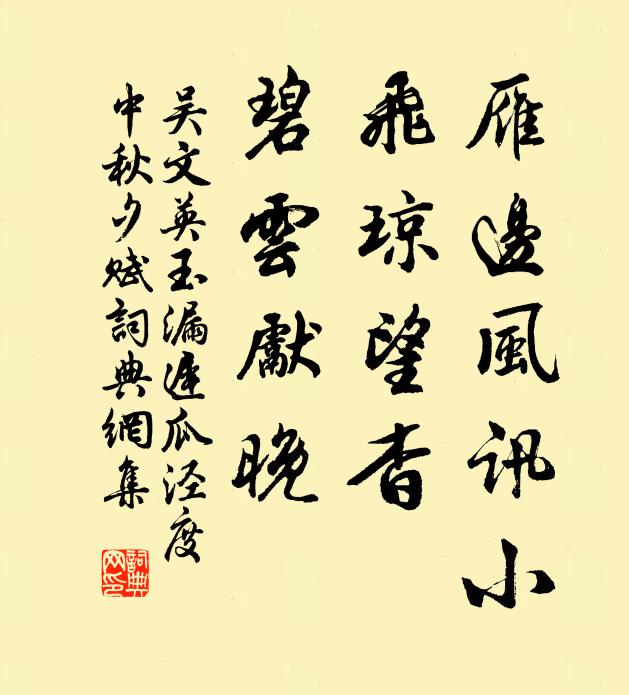 雁邊風訊小
飛瓊望杳
碧雲獻晚
吳文英玉漏遲瓜泾度
中秋夕賦詞典網集
詞典
网印